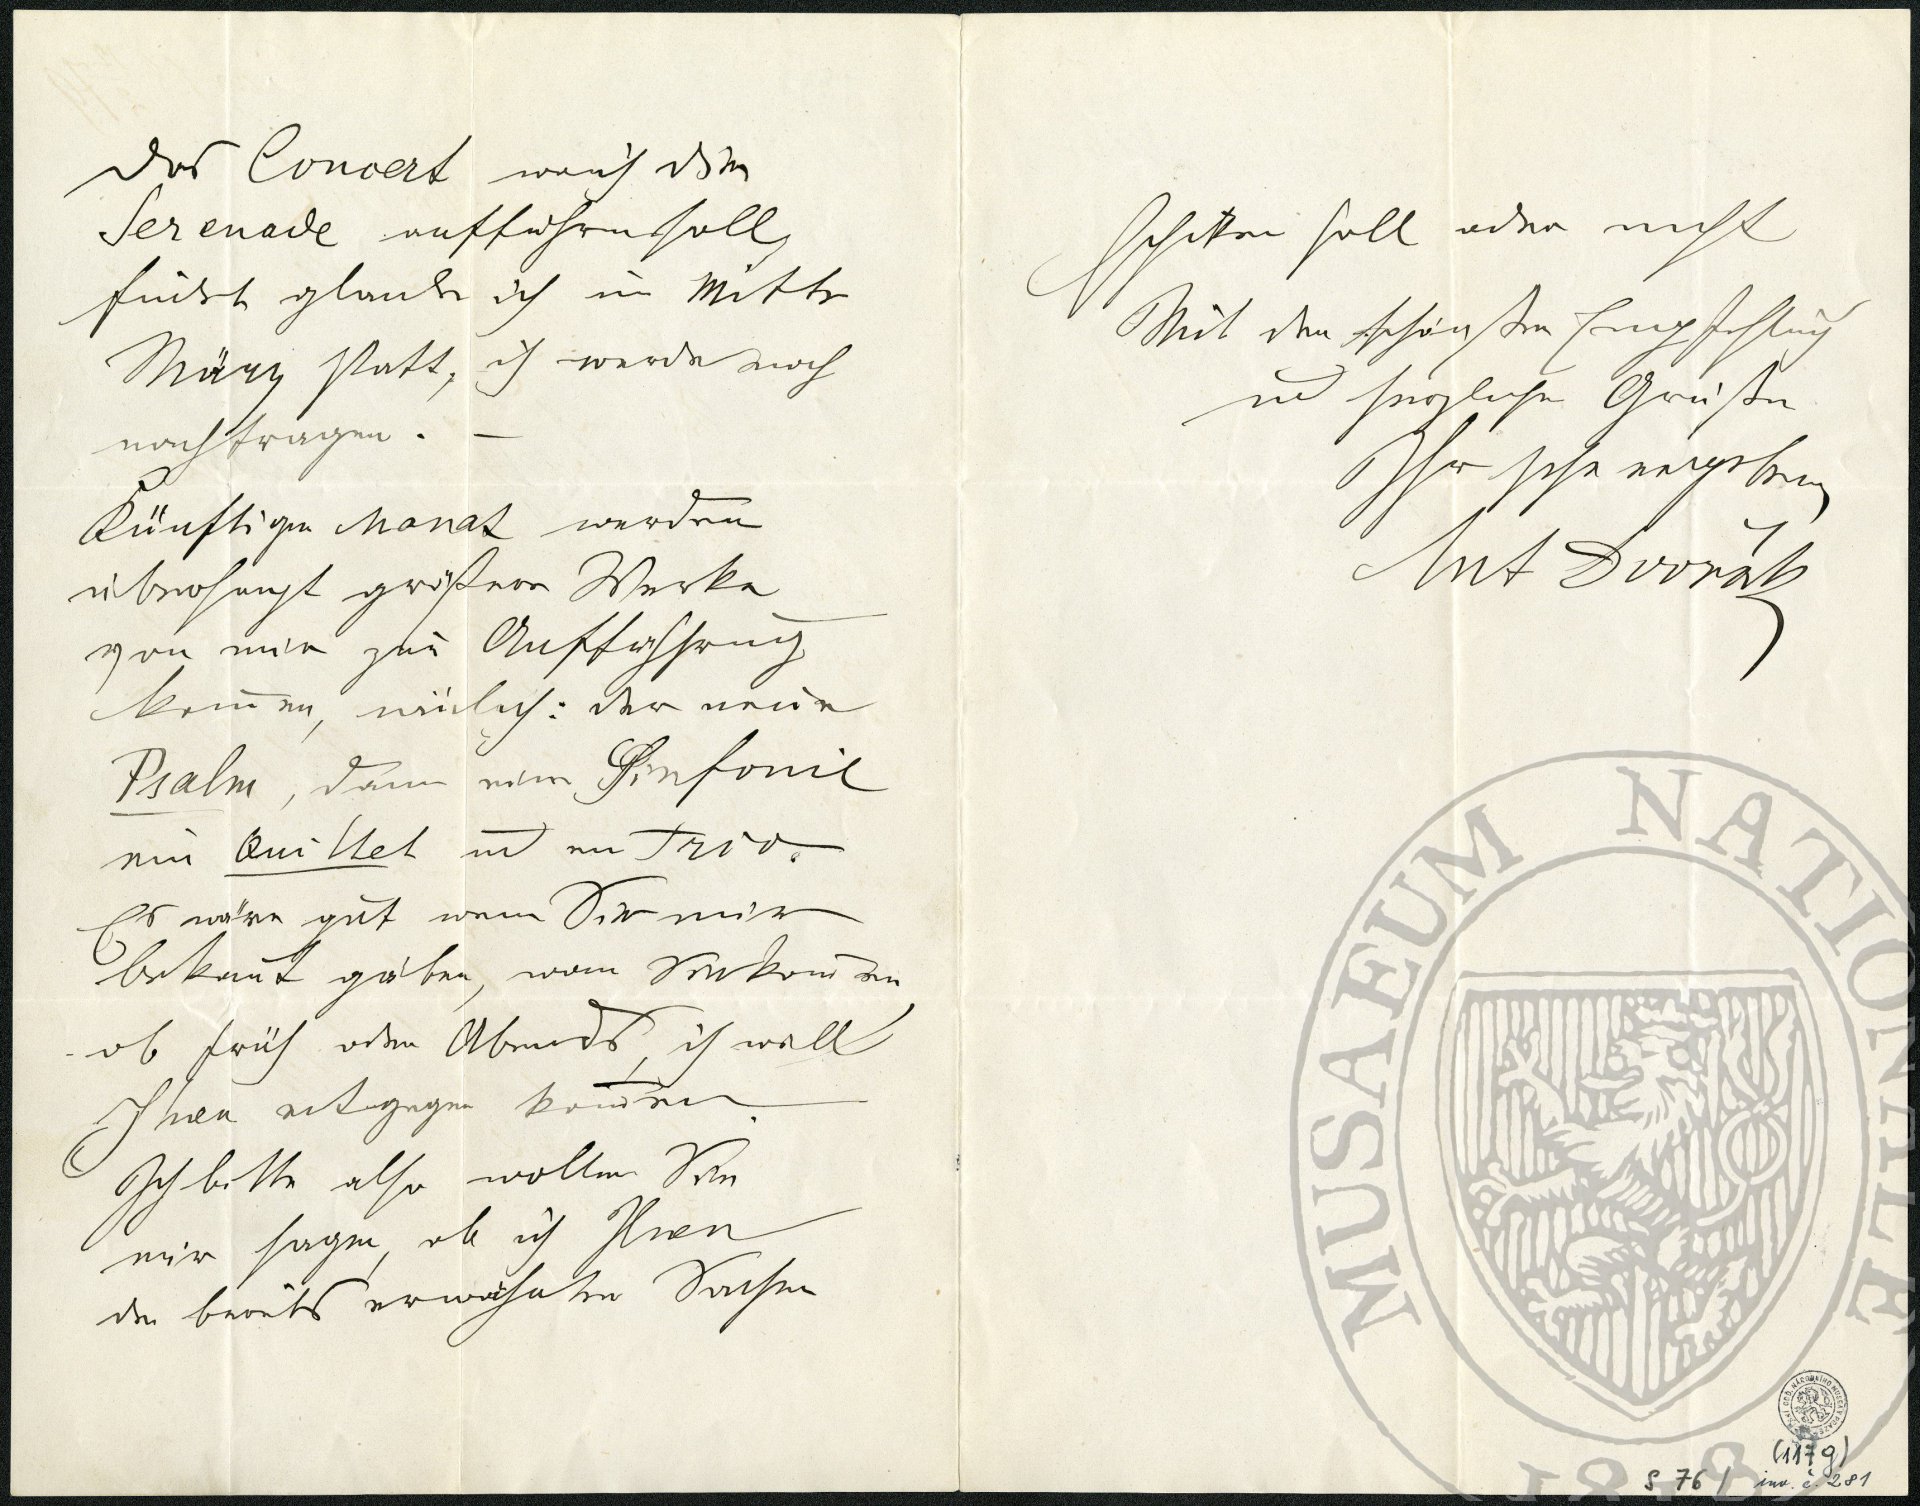 Das Concert welch die
Serenade aufführen soll,
findet glaube ich in Mitte
März statt, ich werde noch
nachfragen. —
Künftigen Monat werden
überhaupt größere Werke
von mir zur Aufführung
kom̄en, näm̄lich: der neue
Psalm, dann eine Sinfonie
ein Quittet und ein Trio.
Es wäre gut wenn Sie mir
bekannt gäben, wann Sie kom̄en
ob früh oder Abends, ich will
Ihnen entgegen kom̄en.
Ich bitte also wollen Sie
mir sagen, ob ich Ihnen
die bereits erwähnten Sachen
schikken soll oder nicht
Mit den schönsten Empfehlung
und herzliche Grüße
Ihr sehr ergebener
Ant Dvořák
MUSAEUM NATIONALE
1818
(117g)
S 76 / inv. č. 281